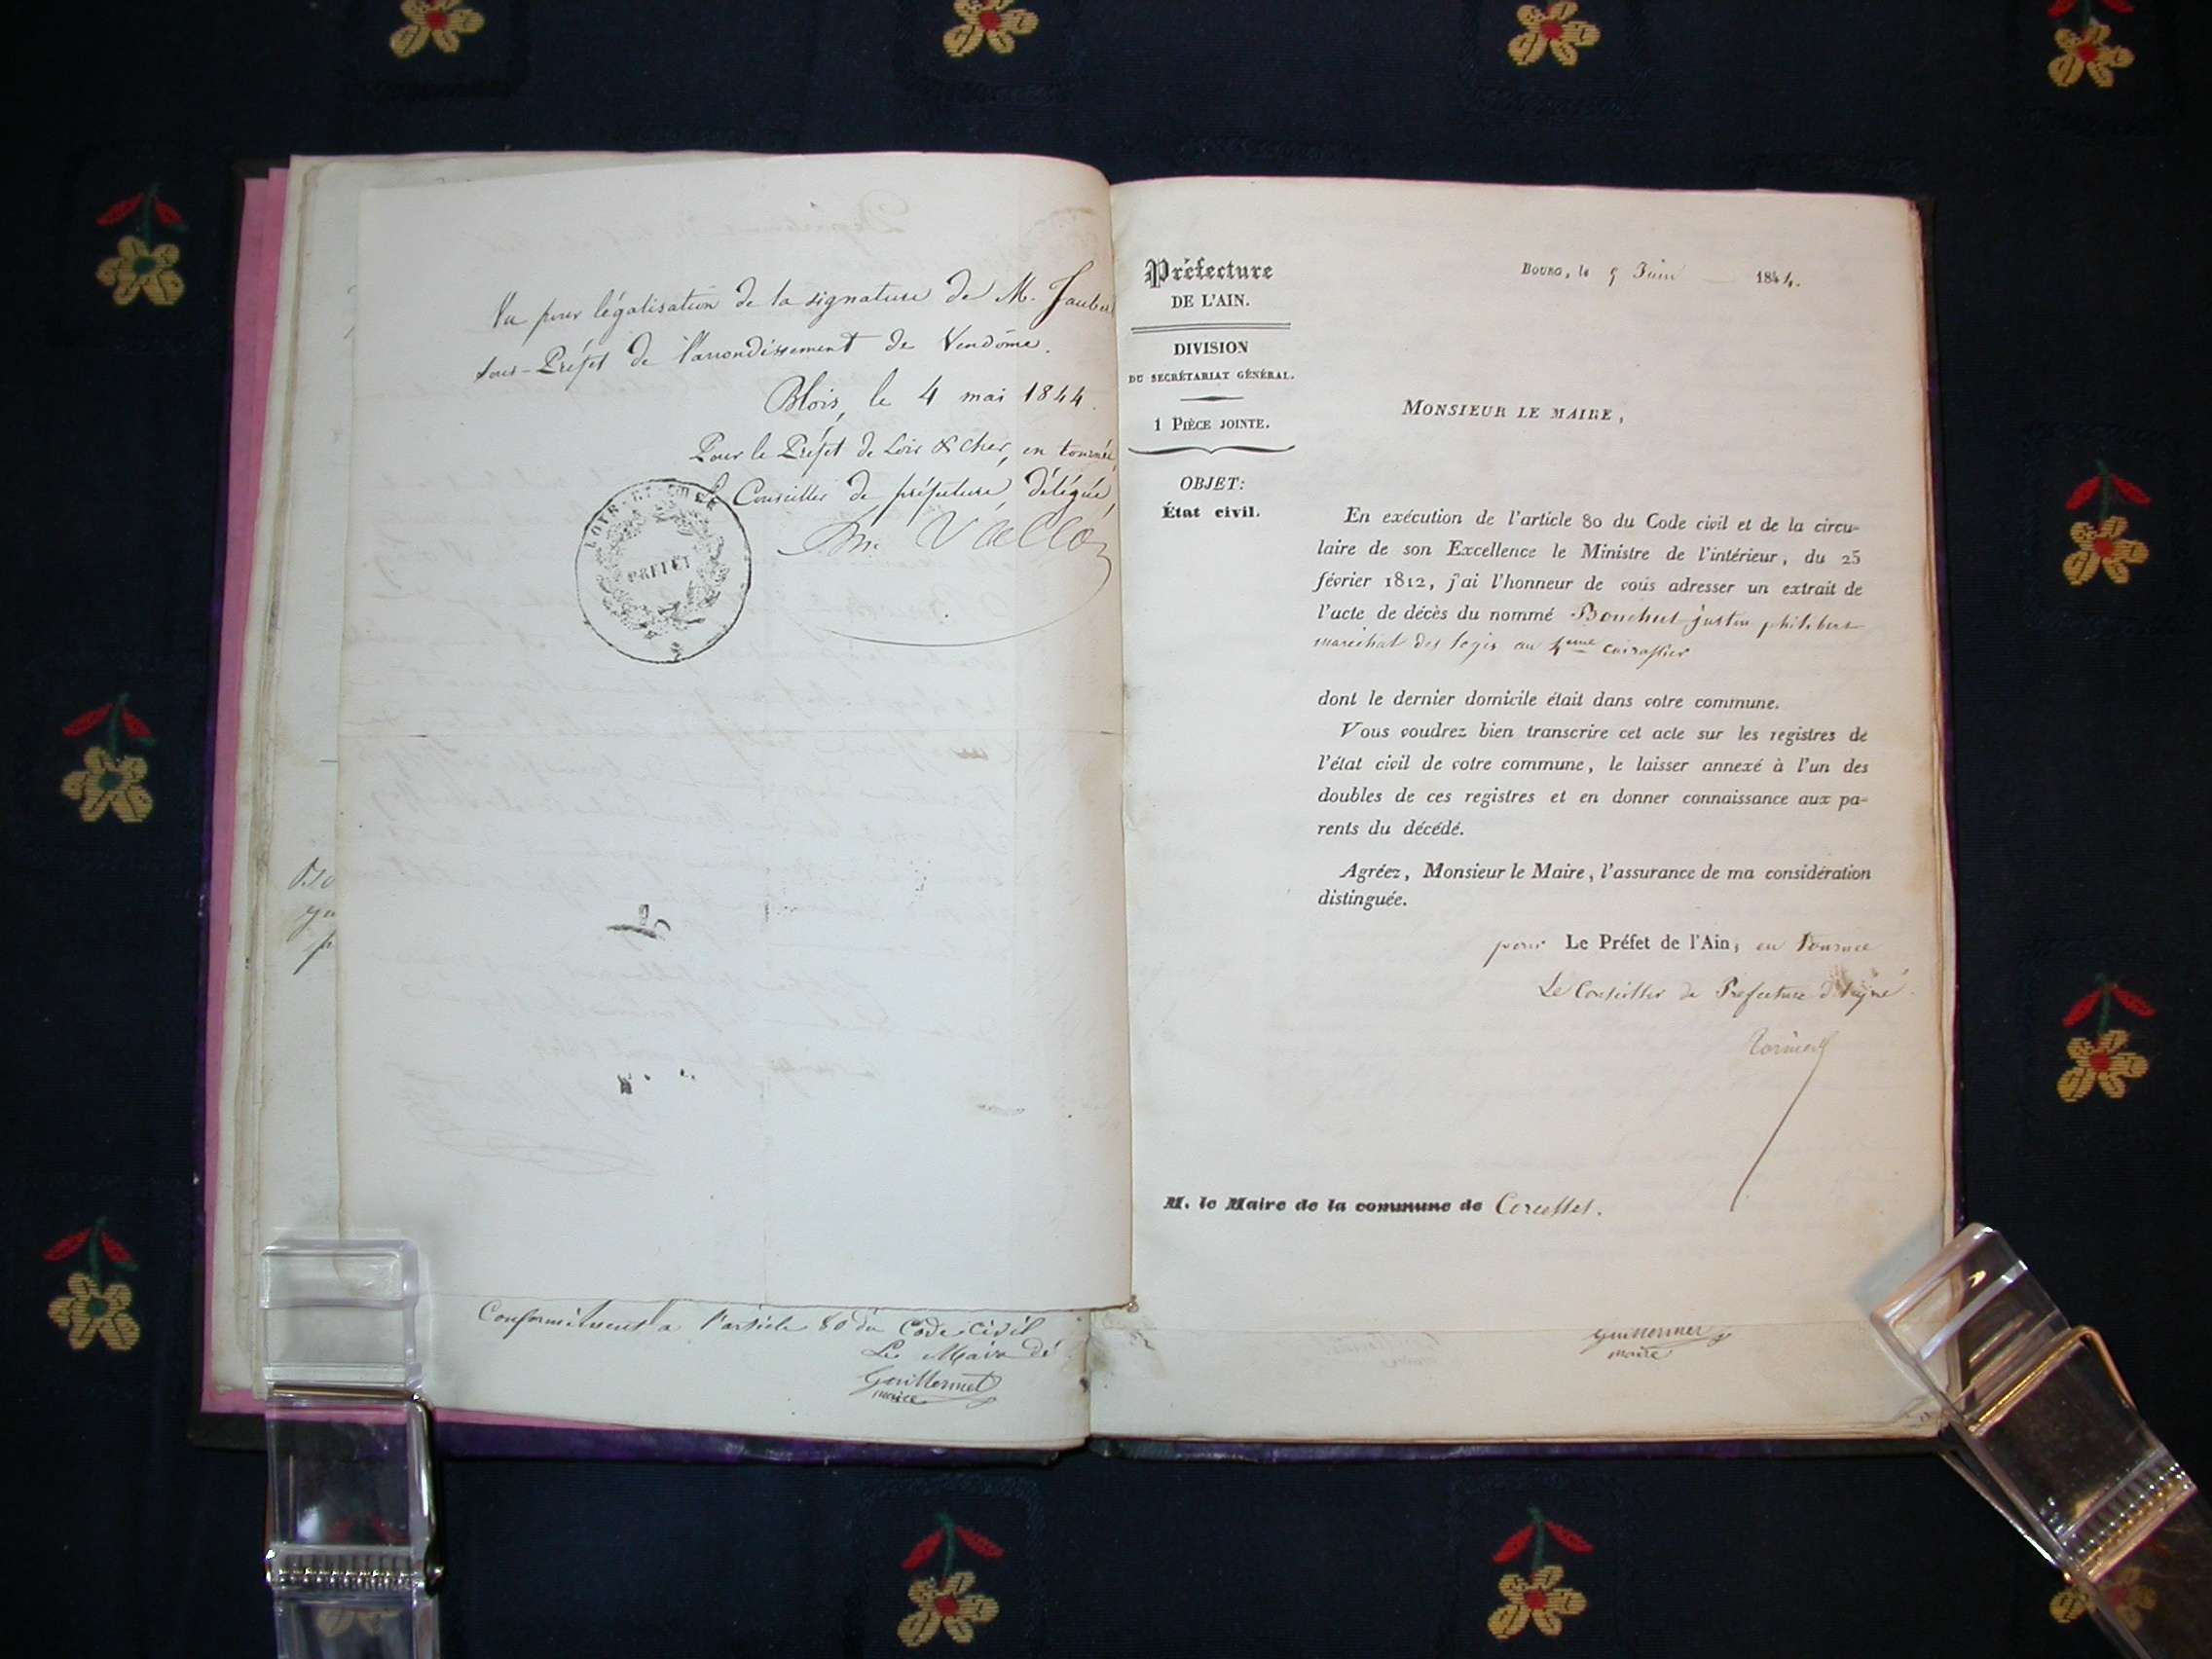 Vu pour légalisation de la signature de M. Jaubert
sous-Préfet de l'arrondissement de Vendôme.
Blois, le 4 mai 1844.
Pour le Préfet de Loir & Cher, en tournée,
Le Conseiller de préfecture, délégué,
LOIR-ET-CHER
PREFET
Conformément à l'article 80 du Code civil
Le Maire de
Guillermet
maire
Préfecture
DE L'AIN.
DIVISION
DU SECRÉTARIAT GÉNÉRAL.
1 PIÈCE JOINTE.
OBJET:
État civil.
BOURG, le 5 Juin 1844.
MONSIEUR LE MAIRE,
En exécution de l'article 80 du Code civil et de la circu-
laire de son Excellence le Ministre de l'intérieur, du 25
février 1812, j'ai l'honneur de vous adresser un extrait de
l'acte de décès du nommé Bouchut justin philibert
maréchal des logis au 4eme cuirassier
dont le dernier domicile était dans votre commune.
Vous voudrez bien transcrire cet acte sur les registres de
l'état civil de votre commune, le laisser annexé à l'un des
doubles de ces registres et en donner connaissance aux pa-
rents du décédé.
Agréez, Monsieur le Maire, l'assurance de ma considération
distinguée.
pour Le Préfet de l'Ain, en tournée
Le Conseiller de Préfecture délégué
M. le Maire de la commune de
Guillermet
maire